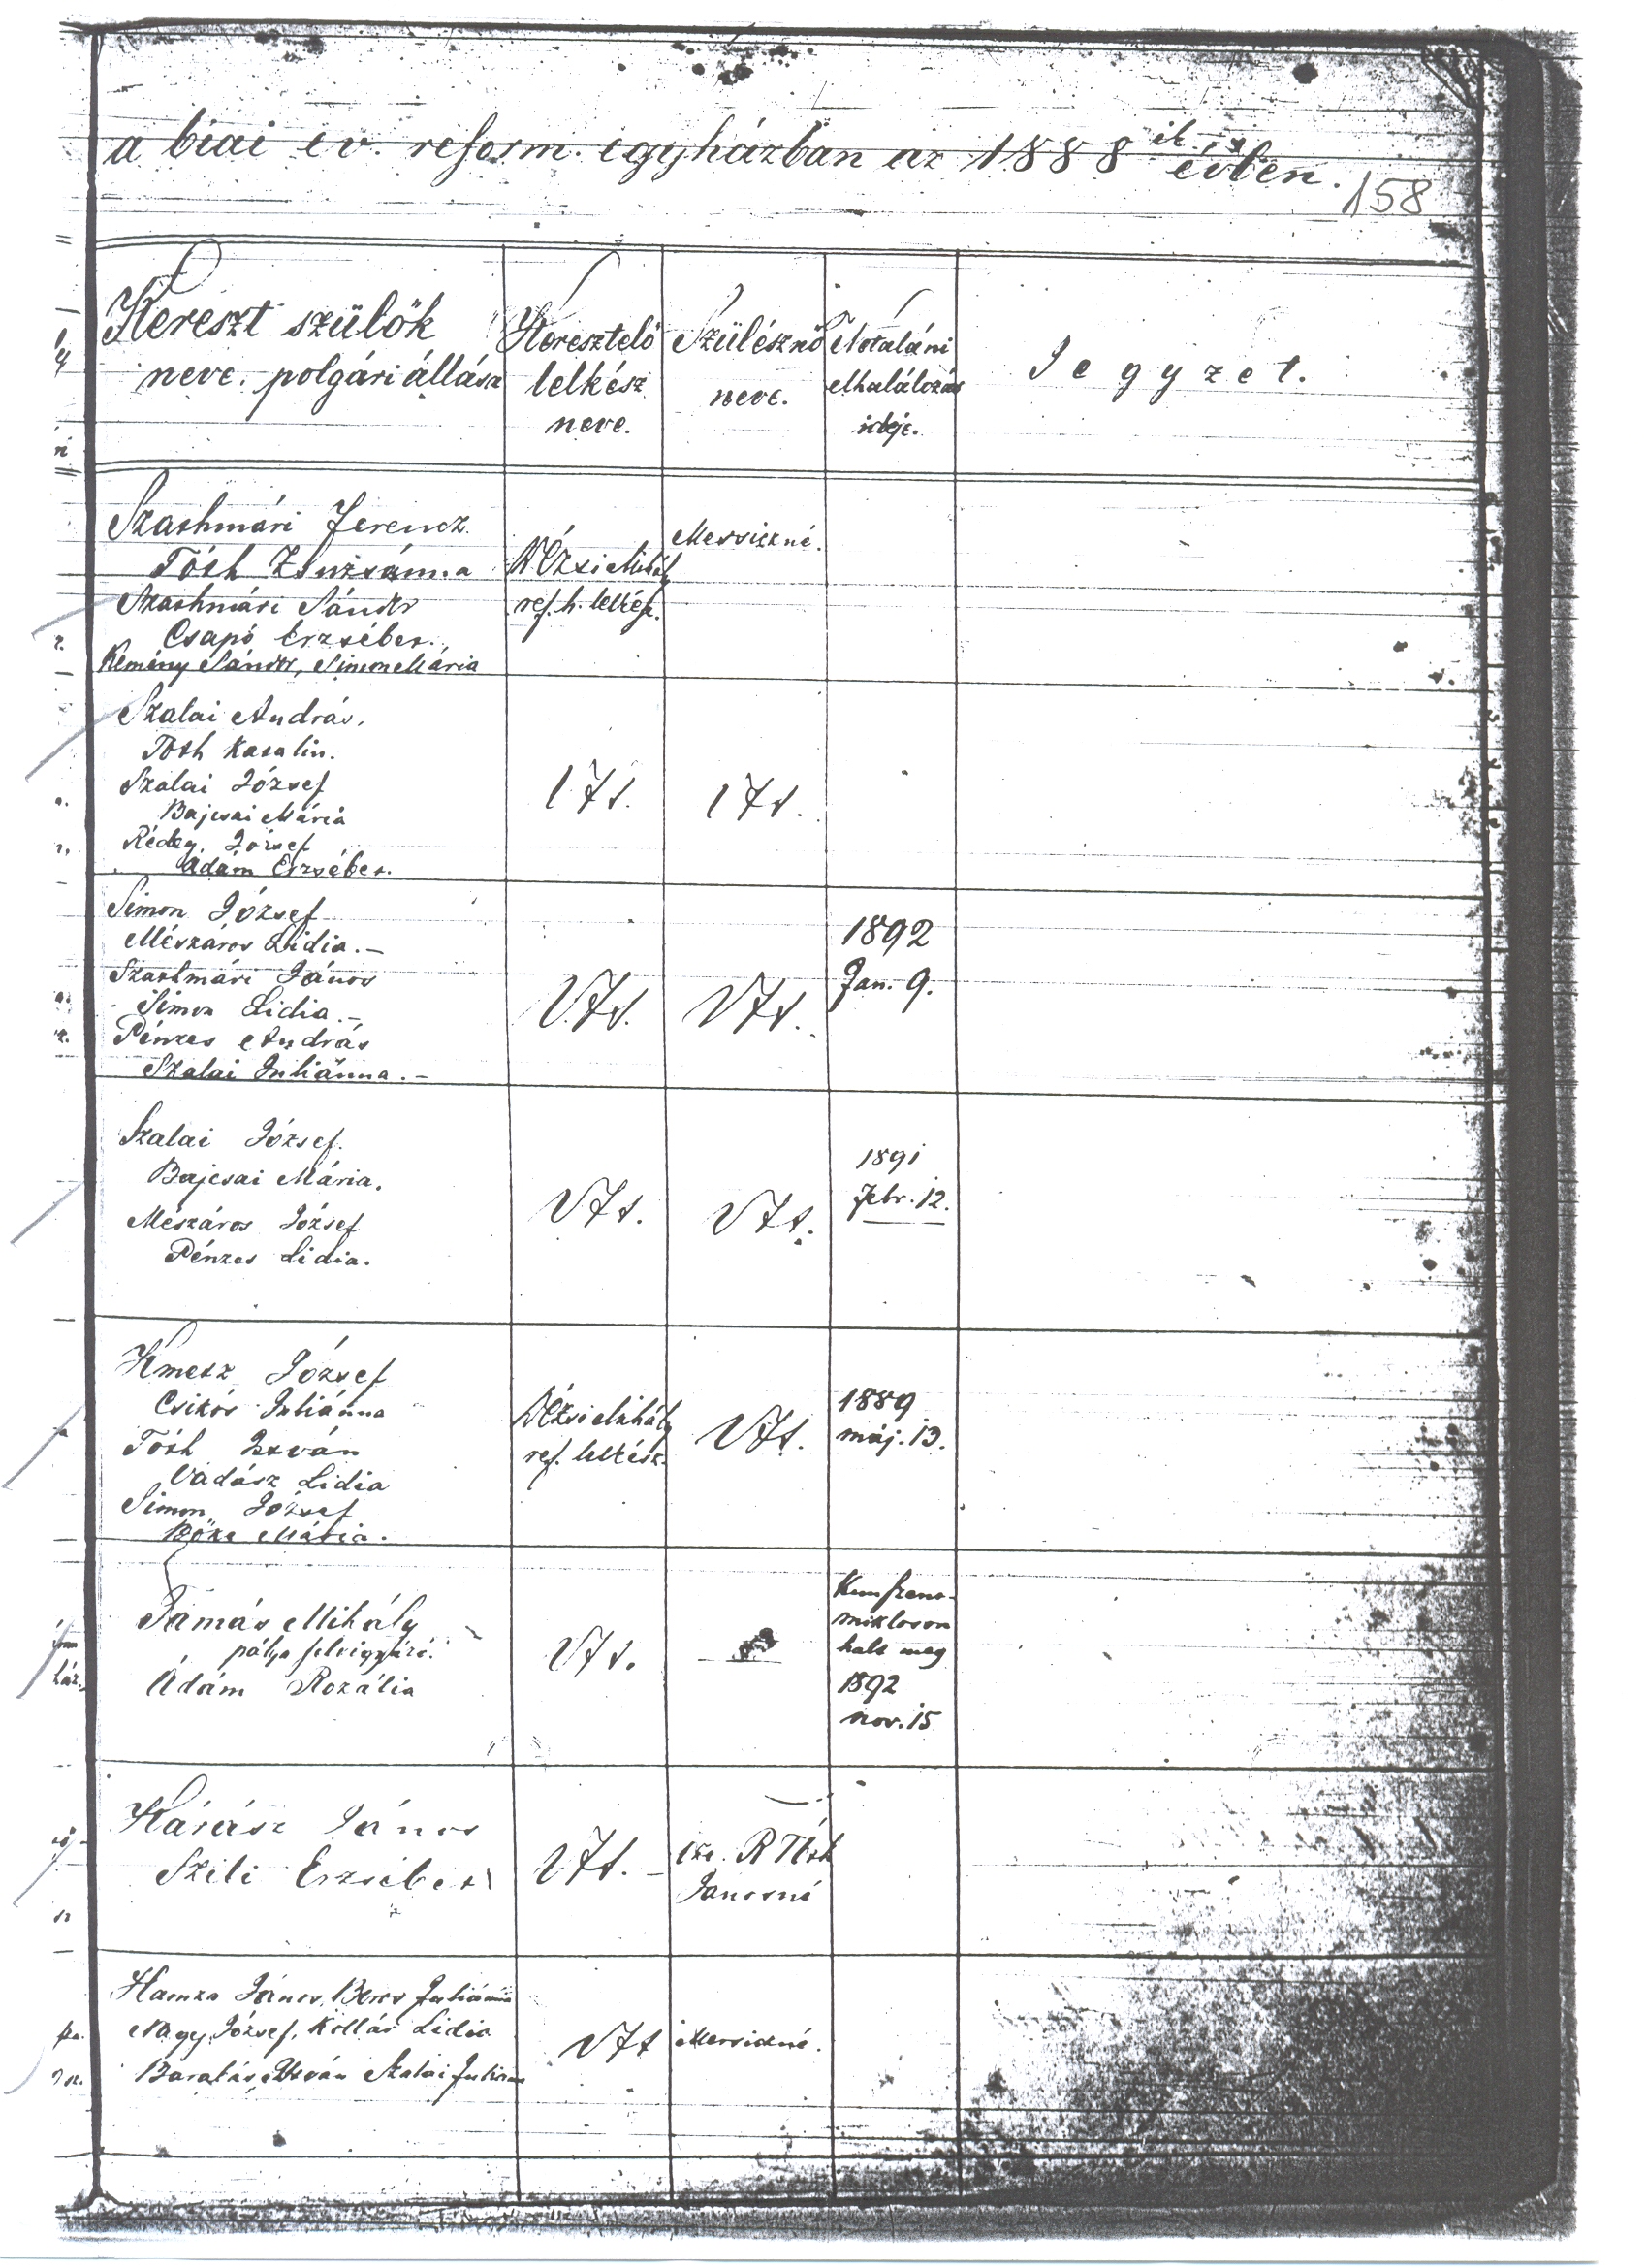 a biai ev. reform. egyházban az 1888 ik évben.
158
Kereszt szülők
neve. polgári állása
Keresztelő
lelkész
neve.
Szülésznő
neve.
Netaláni
elhalálozás
ideje.
Jegyzet.
Szathmári Ferencz.
Tóth Zsuzsánna
Szathmári Sándor
Csapó Erzsébet.
Kemény Sándor, Simon Mária
Dézsi Mihály
ref. h. lelkész.
Szalai András.
Tóth Katalin.
Szalai József
Bajcsai Mária
Rédey József
Ádám Erzsébet.
U7s.
U7s.
Simon József
Mészáros Lidia.—
Szathmári János
Simon Lidia.—
Pénzes András
Szalai Juliánna.—
U7s.
U7s.
1892
Jan. 9.
Szalai József.
Bajcsai Mária.
Mészáros József
Pénzes Lidia.
U7s.
U7s.
1891
Febr. 12.
Kmetz József
Csikós Juliánna
Tóth István
Vadász Lidia
Simon József
Bőze Mária.
Dézsi Mihály
ref. lelkész.
U7s.
1889
máj. 13.
Tamás Mihály
pálya felvigyázó.
Ádám Rozália
U7s.
Kunszent-
mikloson
halt meg
1892
nov. 15
János
Szili Erzsébet
U7s.
R Tóth
Janosné
Hamza János, Boros Juliánna
Nagy József, Kollár Lidia
István Szalai Julianna
U7s